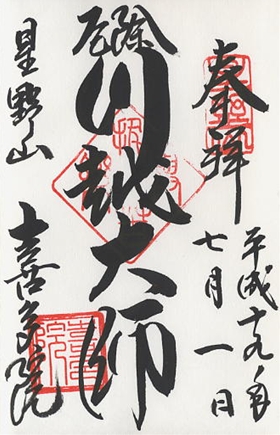 奉拝
平成十九年
七月一日
厄除
川越大師
星野山
喜多院